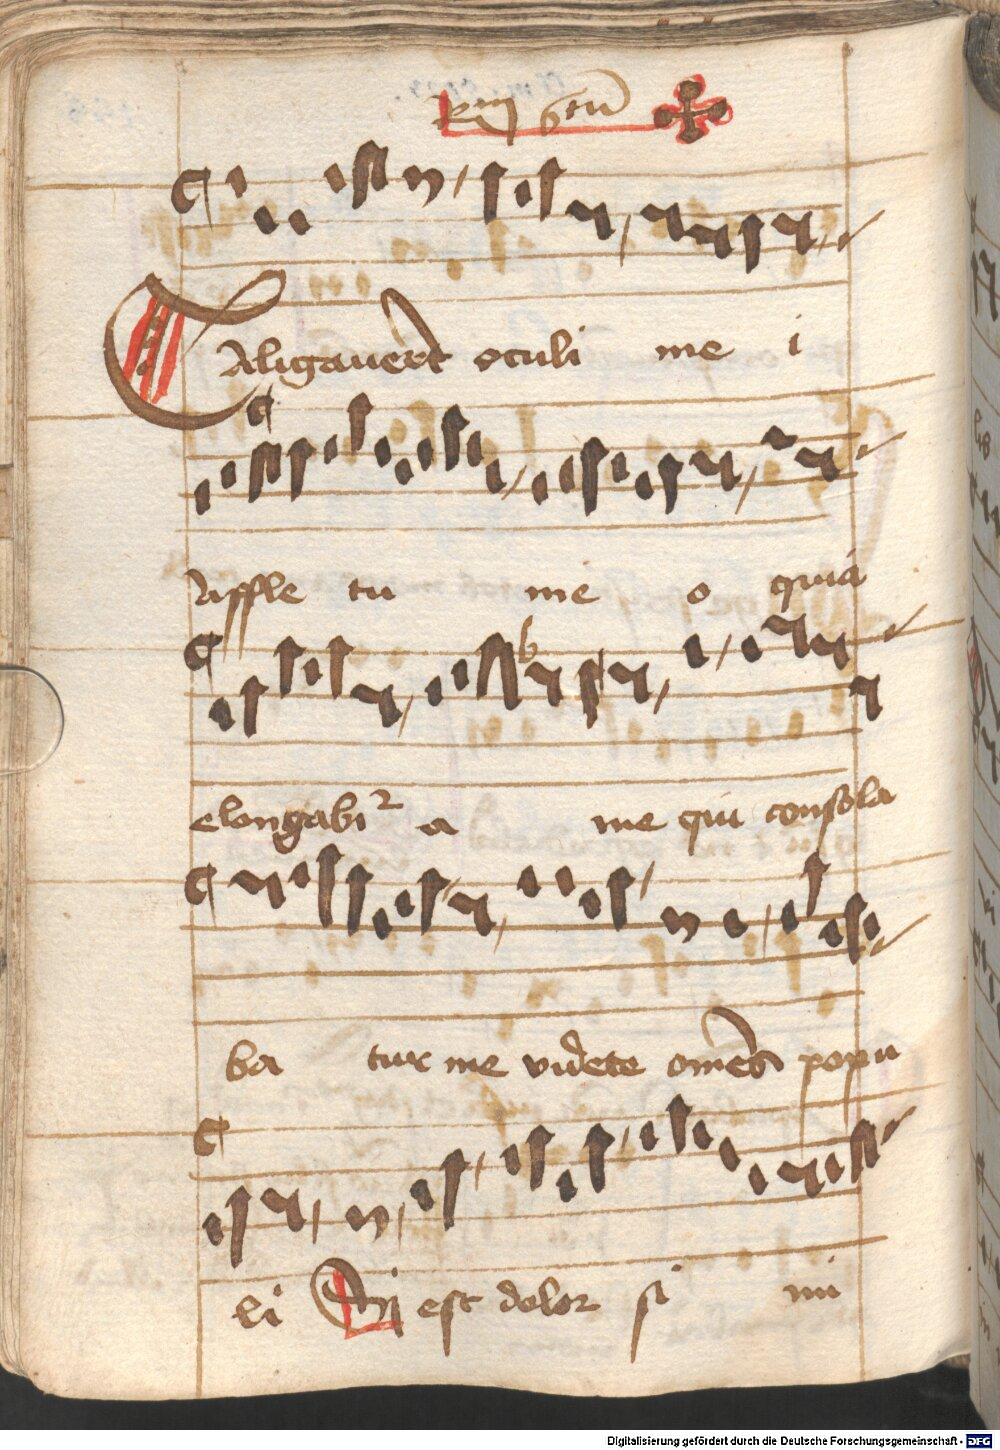 Caligauert oculi me i
Affle tu me o quia
elongabi² a me qui consola
ba tur me videte omēs popu
li Si est dolor si mi
Digitalisierung gefördert durch die Deutsche Forschungsgemeinschaft - DFG